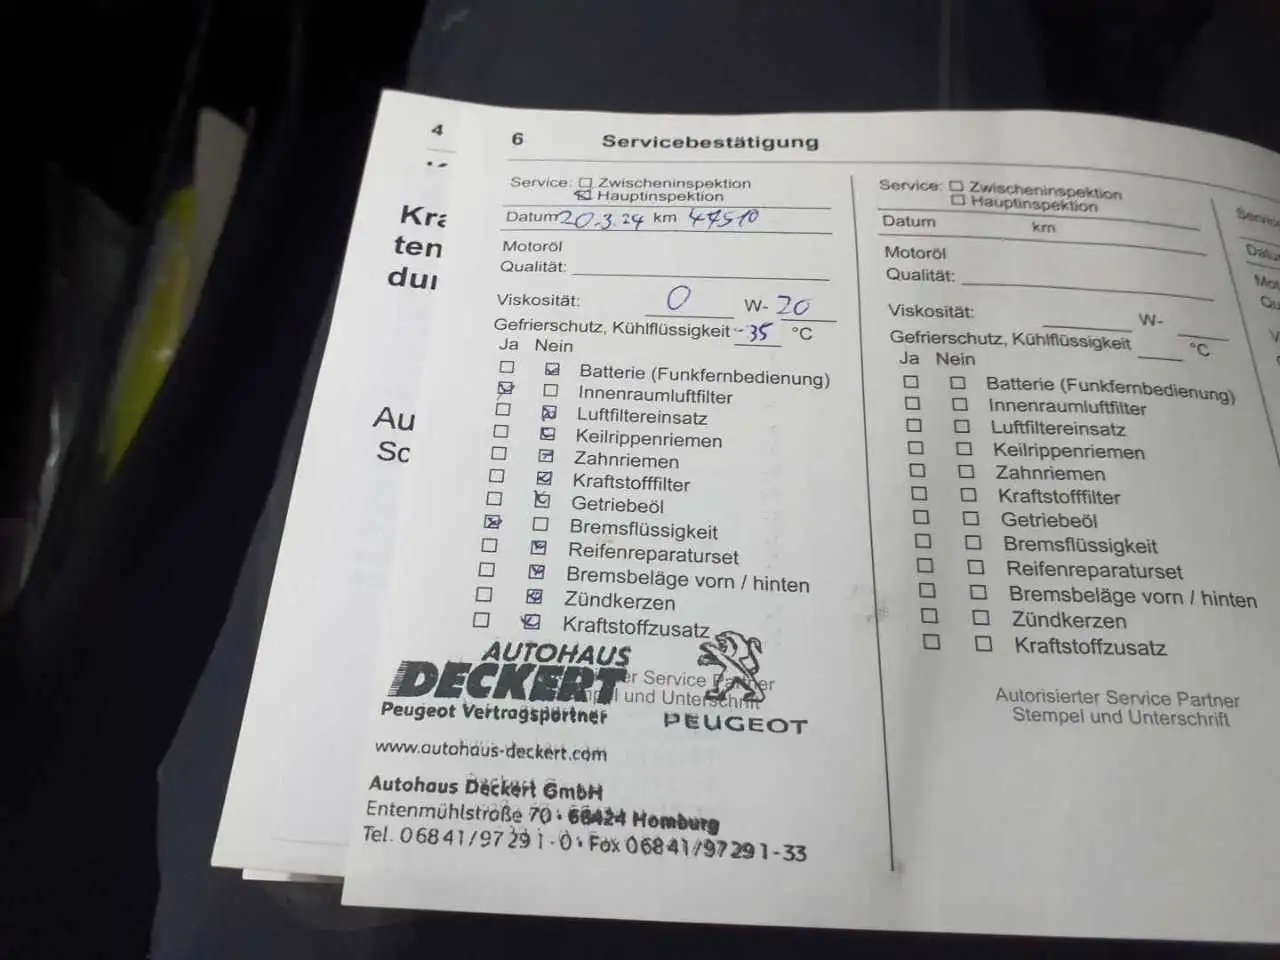 4
6 Servicebestätigung
Kra
ten
dur
Au
Sc
Service: Zwischeninspektion
Hauptinspektion
Datum 20.3.24 km 47510
Motoröl
Qualität:
Viskosität: 0 W- 20
Gefrierschutz, Kühlflüssigkeit -35 °C
Ja Nein
Batterie (Funkfernbedienung)
Innenraumluftfilter
Luftfiltereinsatz
Keilrippenriemen
Zahnriemen
Kraftstofffilter
Getriebeöl
Bremsflüssigkeit
Reifenreparaturset
Bremsbeläge vorn / hinten
Zündkerzen
Kraftstoffzusatz
AUTOHAUS
DECKERT
er Service Partner
pel und Unterschrift
Peugeot Vertragspartner
PEUGEOT
www.autohaus-deckert.com
Autohaus Deckert GmbH
Entenmühlstraße 70 · 66424 Homburg
Tel. 06841/97291-0 · Fax 06841/97291-33
Service: Zwischeninspektion
Hauptinspektion
Datum km
Motoröl
Qualität:
Viskosität: W-
Gefrierschutz, Kühlflüssigkeit °C
Ja Nein
Batterie (Funkfernbedienung)
Innenraumluftfilter
Luftfiltereinsatz
Keilrippenriemen
Zahnriemen
Kraftstofffilter
Getriebeöl
Bremsflüssigkeit
Reifenreparaturset
Bremsbeläge vorn / hinten
Zündkerzen
Kraftstoffzusatz
Autorisierter Service Partner
Stempel und Unterschrift